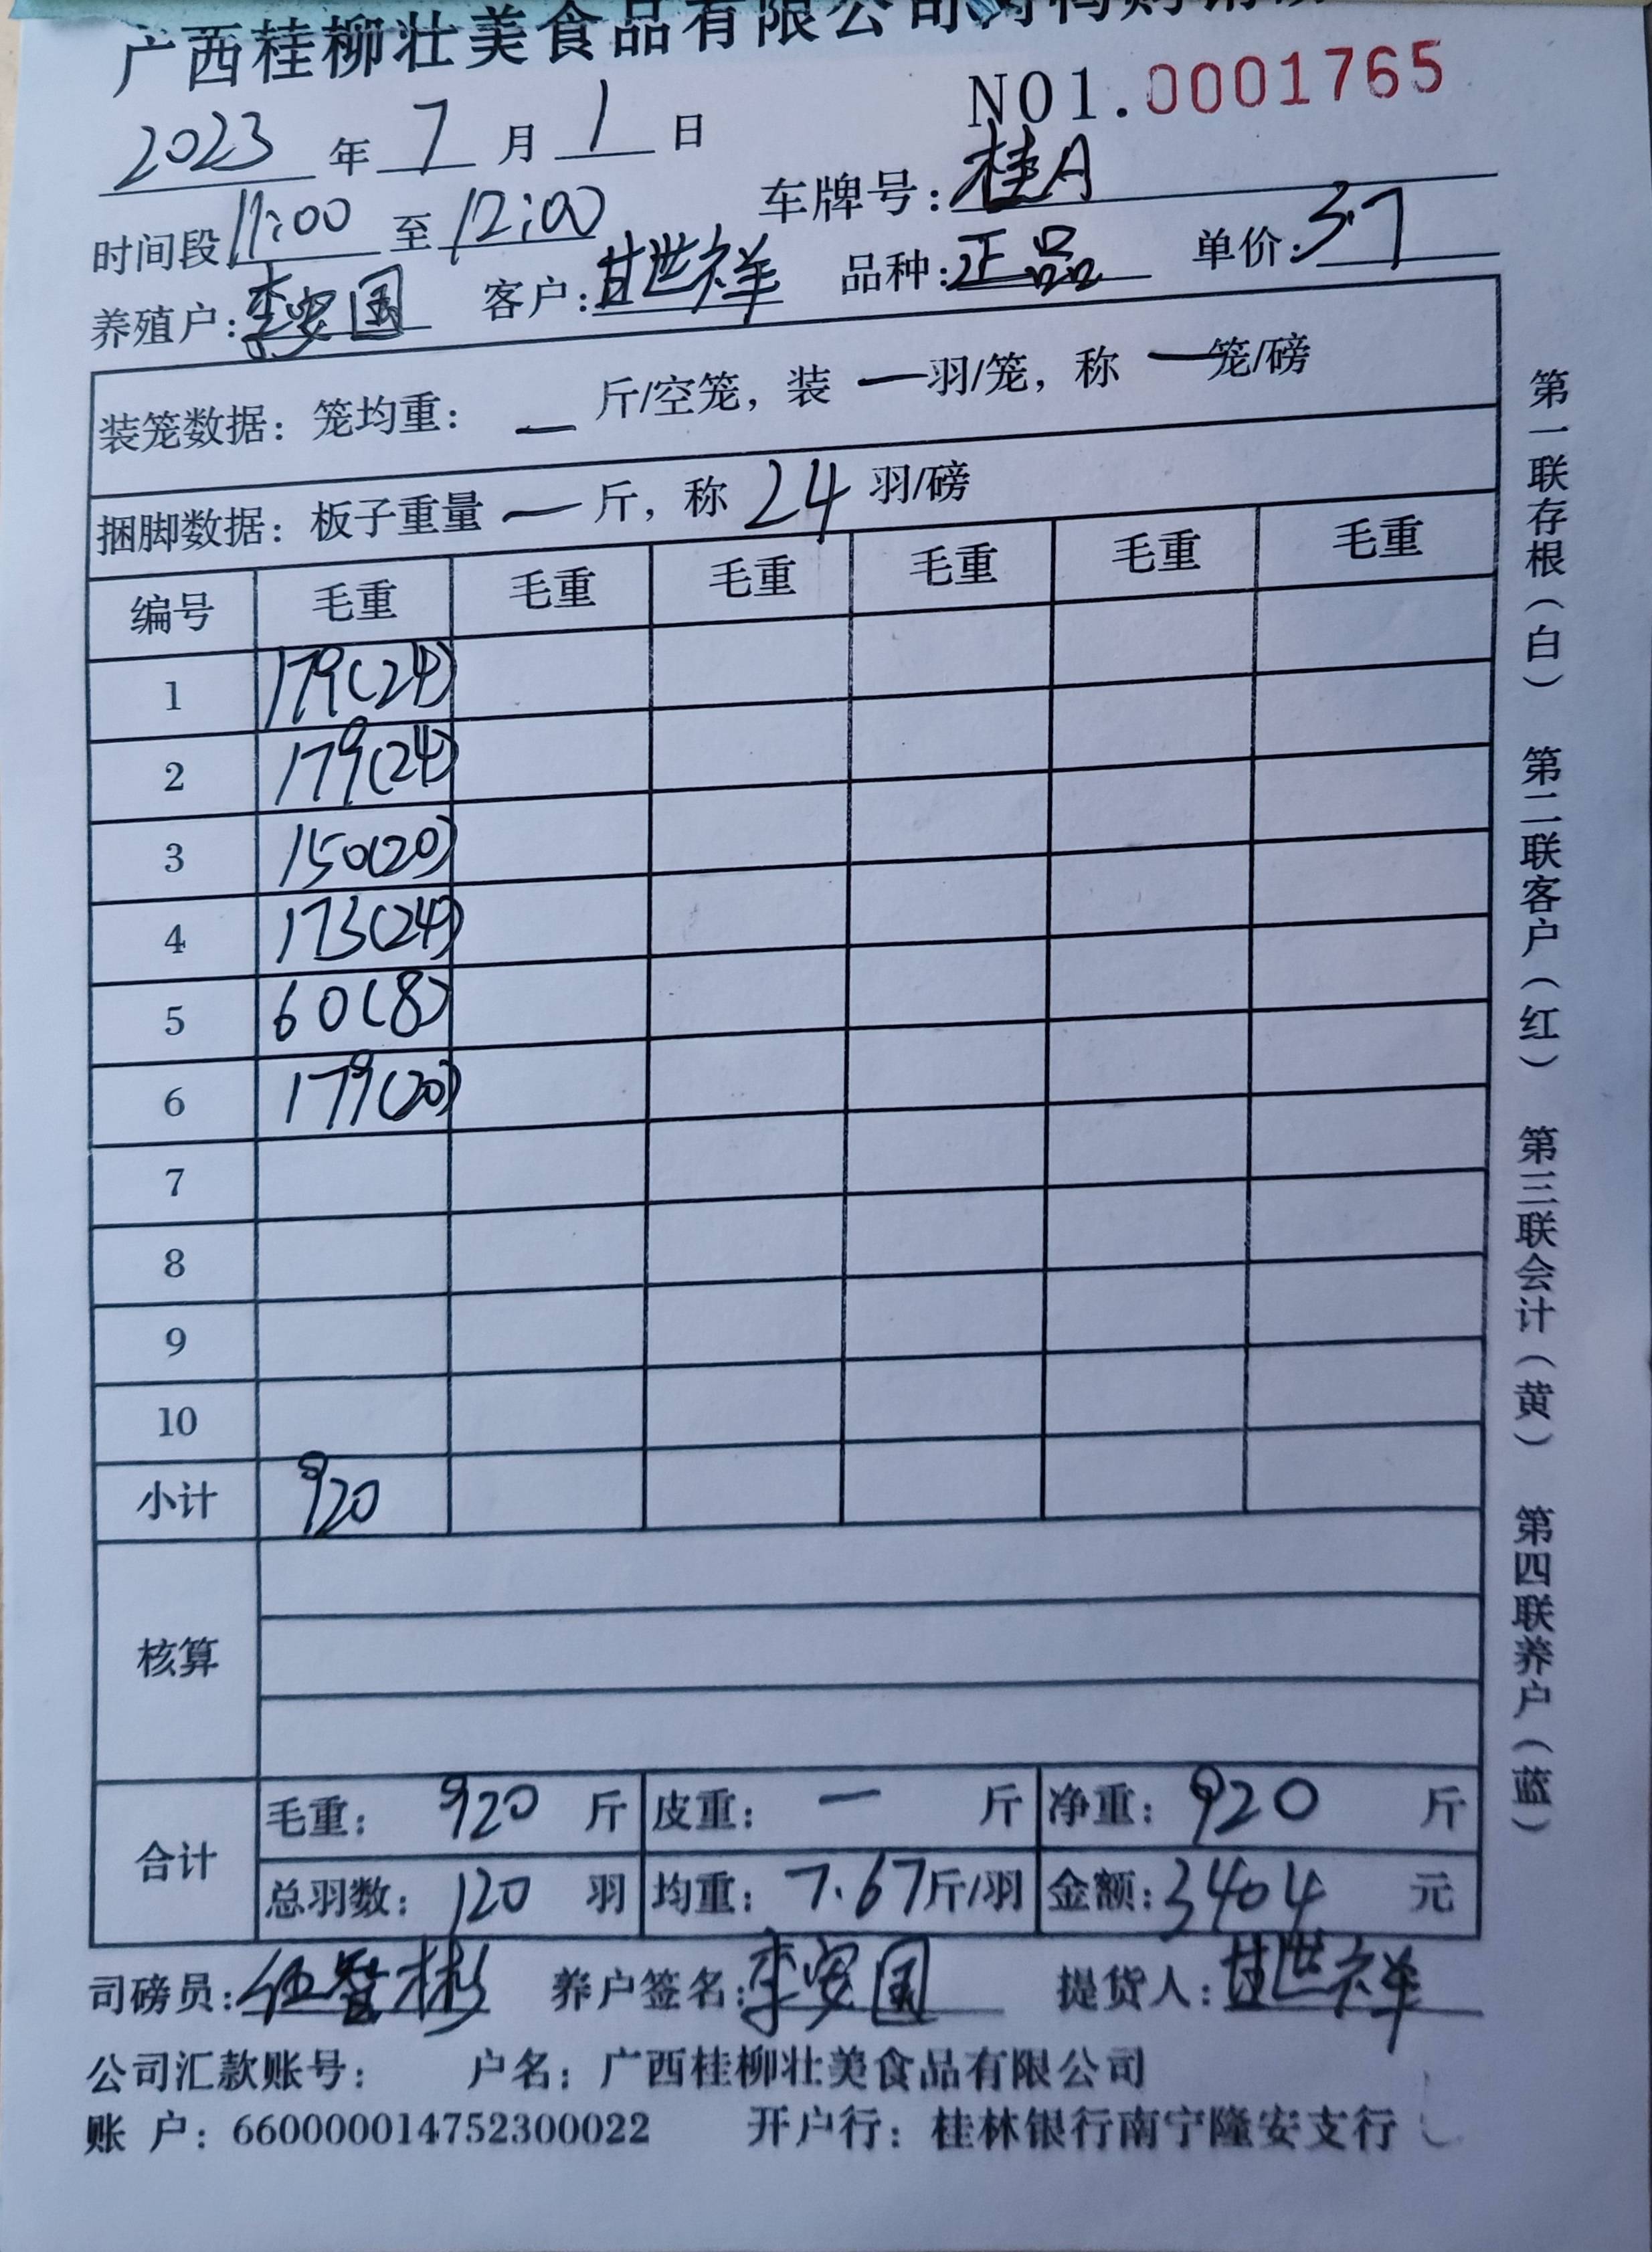 广西桂柳壮美食品有限公司
NO1.0001765
2023 年 7 月 1 日
车牌号:桂A
时间段 11:00 至 12:00
养殖户:李安国 客户:甘世祥 品种:正品 单价:3.7
装笼数据：笼均重： — 斤/空笼，装 — 羽/笼，称 — 笼/磅
捆脚数据：板子重量 — 斤，称 24 羽/磅
编号 毛重 毛重 毛重 毛重 毛重 毛重
1 179(24)
2 179(24)
3 150(20)
4 173(24)
5 60(8)
6 179(20)
7
8
9
10
小计 920
核算
合计
毛重： 920 斤 皮重： — 斤 净重：920 斤
总羽数：120 羽 均重：7.67斤/羽 金额:3404 元
司磅员:伍智彬 养户签名:李安国 提货人:甘世祥
公司汇款账号： 户名：广西桂柳壮美食品有限公司
账 户：660000014752300022 开户行：桂林银行南宁隆安支行
第一联存根（白） 第二联客户（红） 第三联会计（黄） 第四联养户（蓝）